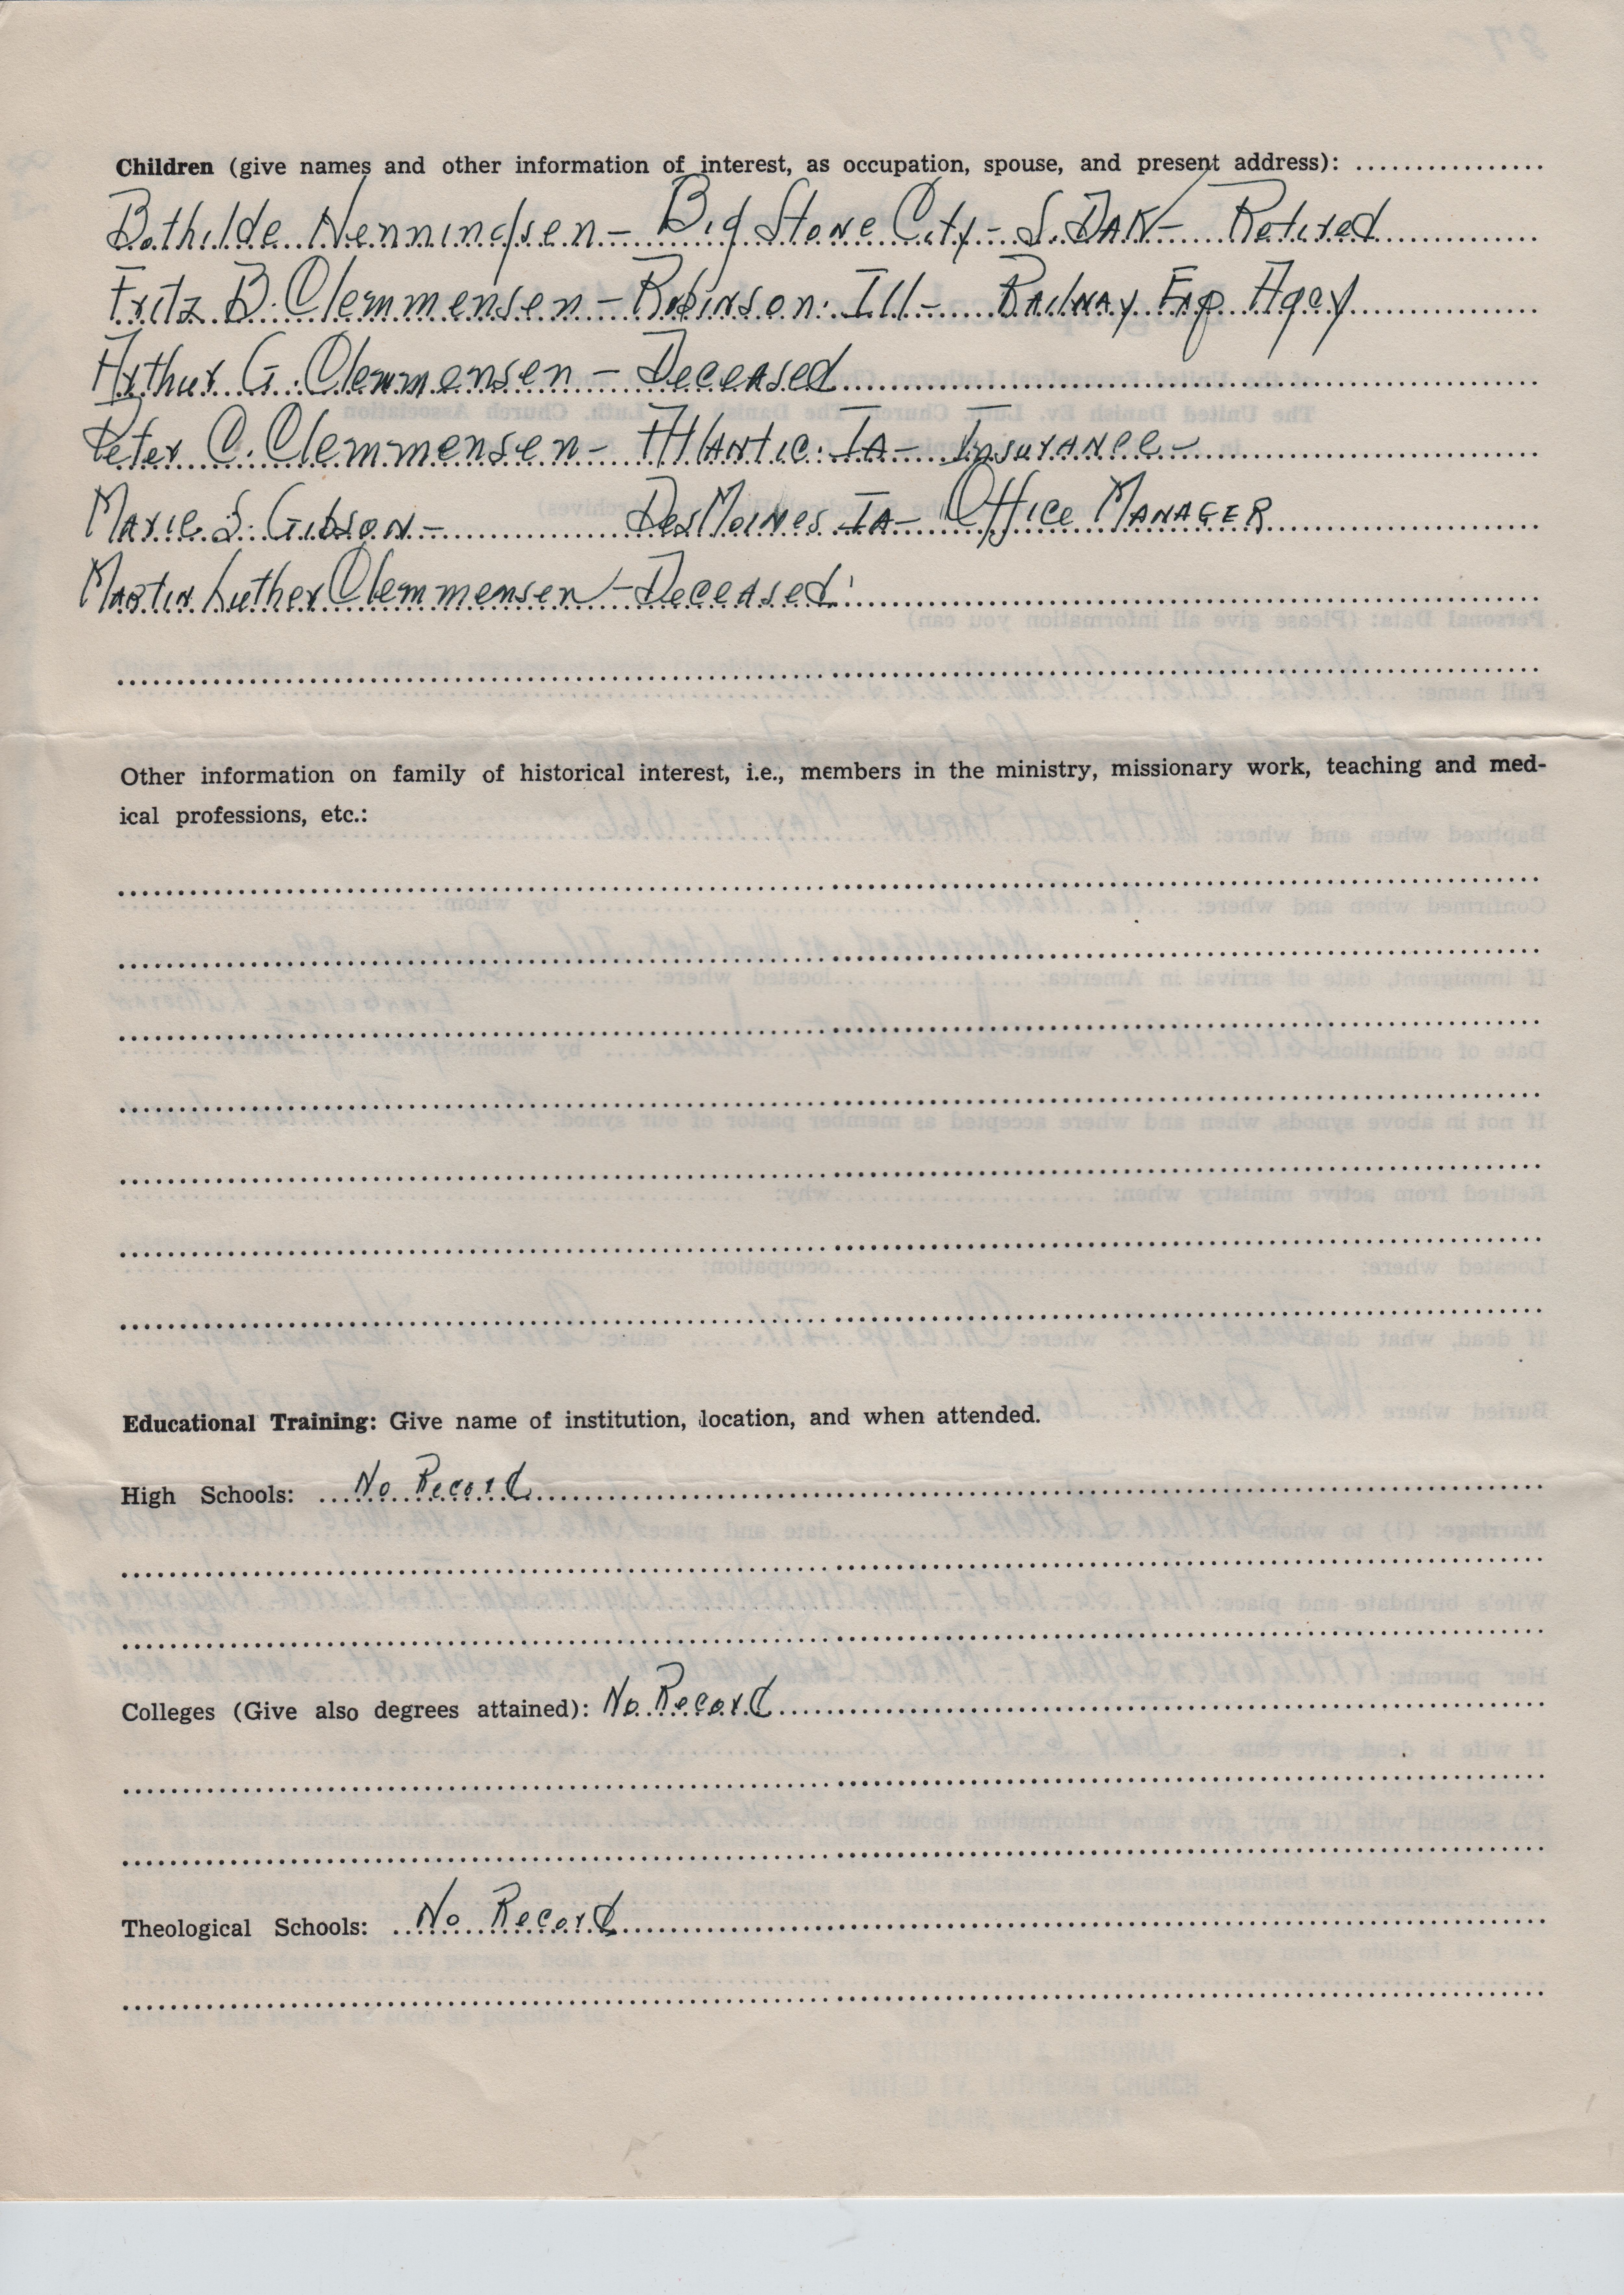 Children (give names and other information of interest, as occupation, spouse, and present address):
Bothilde Henningsen – Big Stone City – S. DAK – Retired
Fritz B. Clemmensen – Robinson. Ill – Railway Exp Agcy
Arthur G. Clemmensen – Deceased
Peter C. Clemmensen – Atlantic. IA – Insurance –
Marie S. Gibson – Des Moines IA – Office MANAGER
Martin Luther Clemmensen – Deceased
Other information on family of historical interest, i.e., members in the ministry, missionary work, teaching and med-
ical professions, etc.:
Educational Training: Give name of institution, location, and when attended.
High Schools: No Record
Colleges (Give also degrees attained): No Record
Theological Schools: No Record